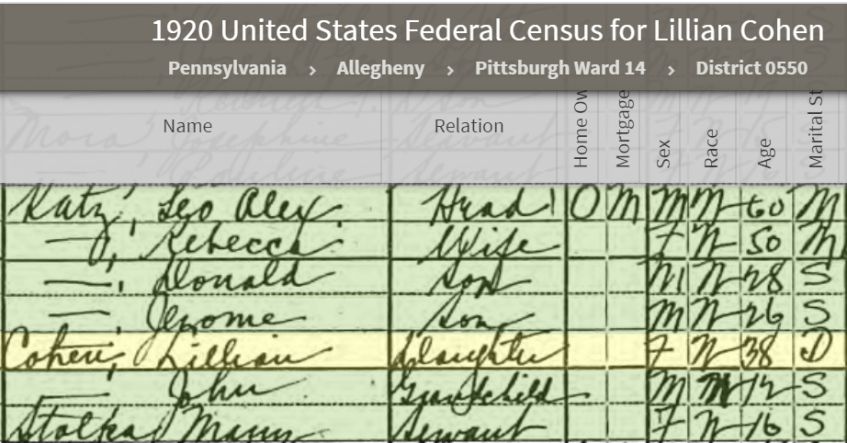 1920 United States Federal Census for Lillian Cohen
Pennsylvania › Allegheny › Pittsburgh Ward 14 › District 0550
Name Relation Home Ow Mortgage Sex Race Age Marital St
Katz, Leo Alex. Head O M M W 60 M
—, Rebecca Wife F W 50 M
—, Donald Son M W 28 S
—, Jerome Son M W 26 S
Cohen, Lillian Daughter F W 38 D
— John Grandchild M W 12 S
Servant F W 16 S